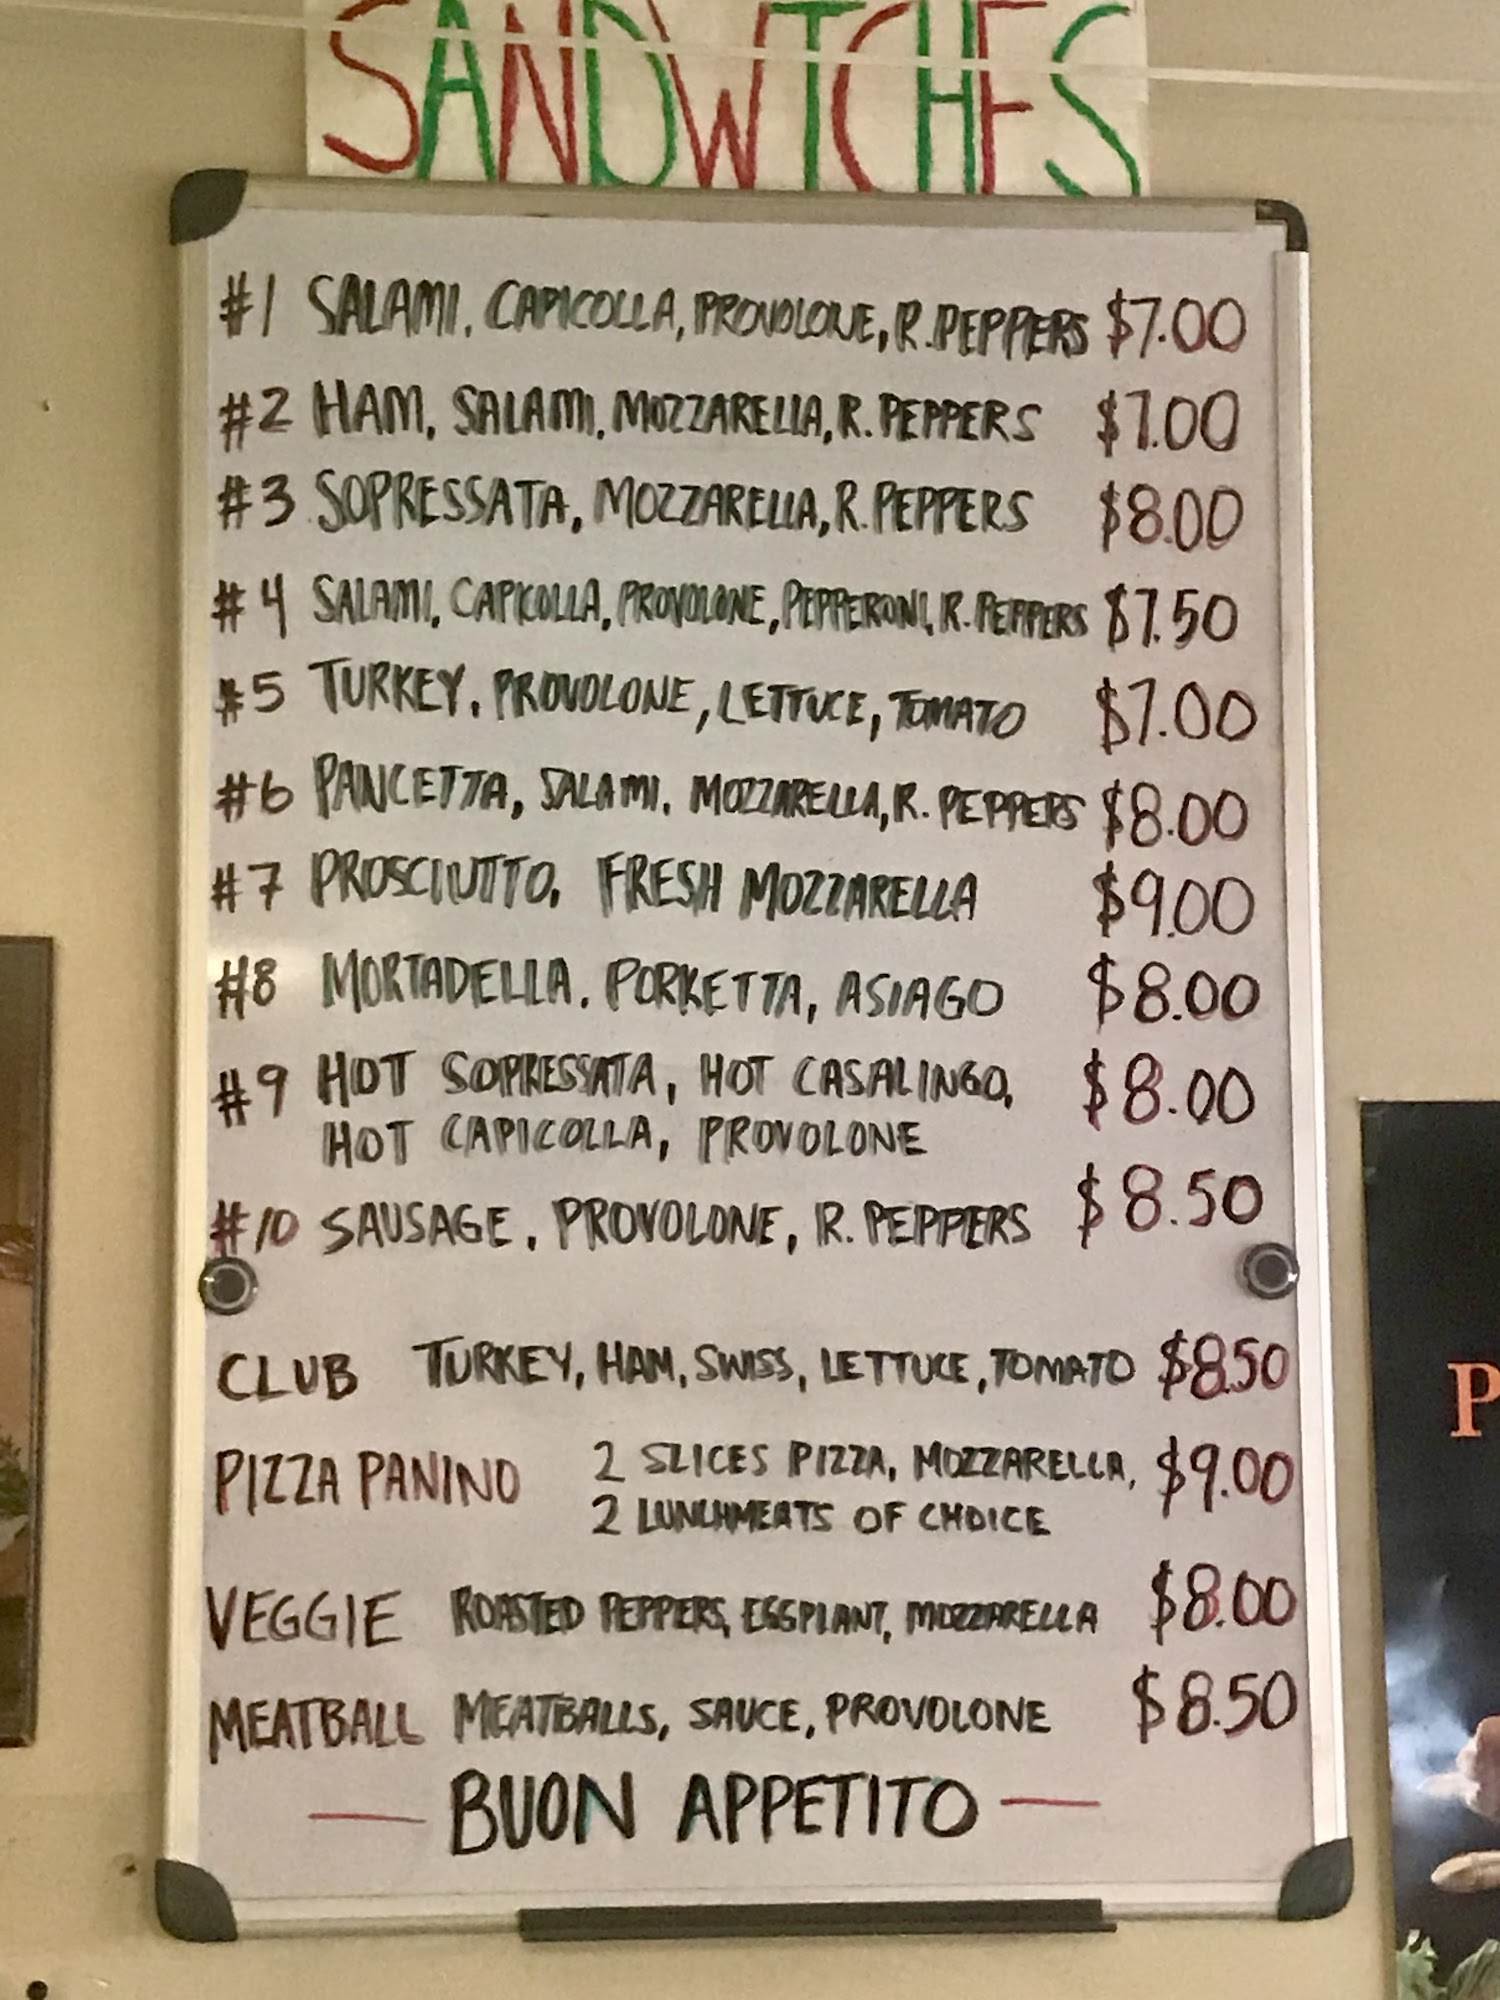 SANDWTCHES
#1 SALAMI, CAPICOLLA, PROVOLONE, R. PEPPERS $7.00
#2 HAM, SALAMI, MOZZARELLA, R. PEPPERS $7.00
#3 SOPRESSATA, MOZZARELLA, R. PEPPERS $8.00
#4 SALAMI, CAPICOLLA, PROVOLONE, PEPPERONI, R. PEPPERS $7.50
#5 TURKEY, PROVOLONE, LETTUCE, TOMATO $7.00
#6 PANCETTA, SALAMI, MOZZARELLA, R. PEPPERS $8.00
#7 PROSCIUTTO, FRESH MOZZARELLA $9.00
#8 MORTADELLA, PORKETTA, ASIAGO $8.00
#9 HOT SOPRESSATA, HOT CASALINGO, $8.00
HOT CAPICOLLA, PROVOLONE
#10 SAUSAGE, PROVOLONE, R. PEPPERS $8.50
CLUB TURKEY, HAM, SWISS, LETTUCE, TOMATO $8.50
PIZZA PANINO 2 SLICES PIZZA, MOZZARELLA, $9.00
2 LUNCHMEATS OF CHOICE
VEGGIE ROASTED PEPPERS, EGGPLANT, MOZZARELLA $8.00
MEATBALL MEATBALLS, SAUCE, PROVOLONE $8.50
— BUON APPETITO —
P